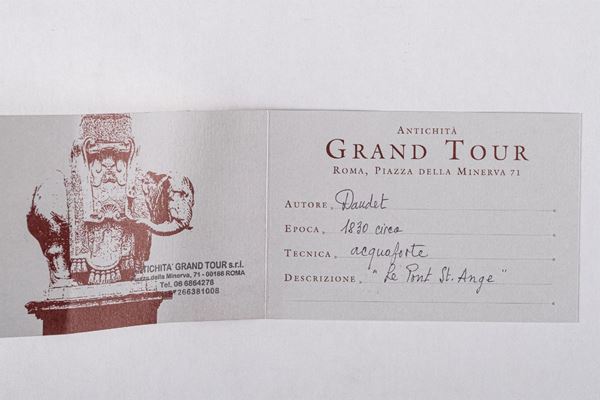 ANTICHITÀ
GRAND TOUR
ROMA, PIAZZA DELLA MINERVA 71
AUTORE Daudet
EPOCA 1830 circa
TECNICA acquaforte
DESCRIZIONE "Le Pont St. Ange"
ANTICHITA' GRAND TOUR s.r.l.
della Minerva, 71 - 00186 ROMA
Tel. 06 6864276